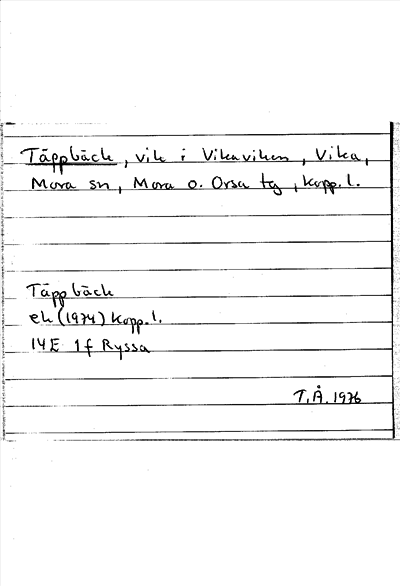 Täppbäck, vik i Vikaviken, Vika,
Mora sn, Mora o. Orsa tg, Kopp. l.
Täppbäck
ek (1974) Kopp. l.
14E 1f Ryssa
T.Å. 1976